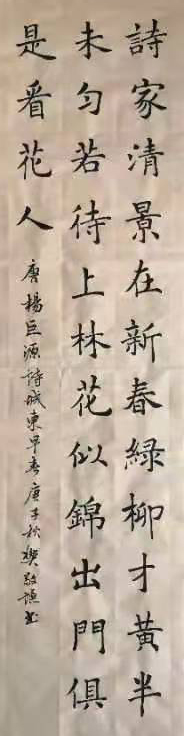 詩家清景在新春綠柳才黃半
未勻若待上林花似錦出門俱
是看花人
唐楊巨源詩城東早春庚子秋